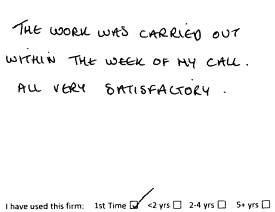 THE WORK WAS CARRIED OUT
WITHIN THE WEEK OF MY CALL.
ALL VERY SATISFACTORY.
I have used this firm: 1st Time ☑ <2 yrs ☐ 2-4 yrs ☐ 5+ yrs ☐